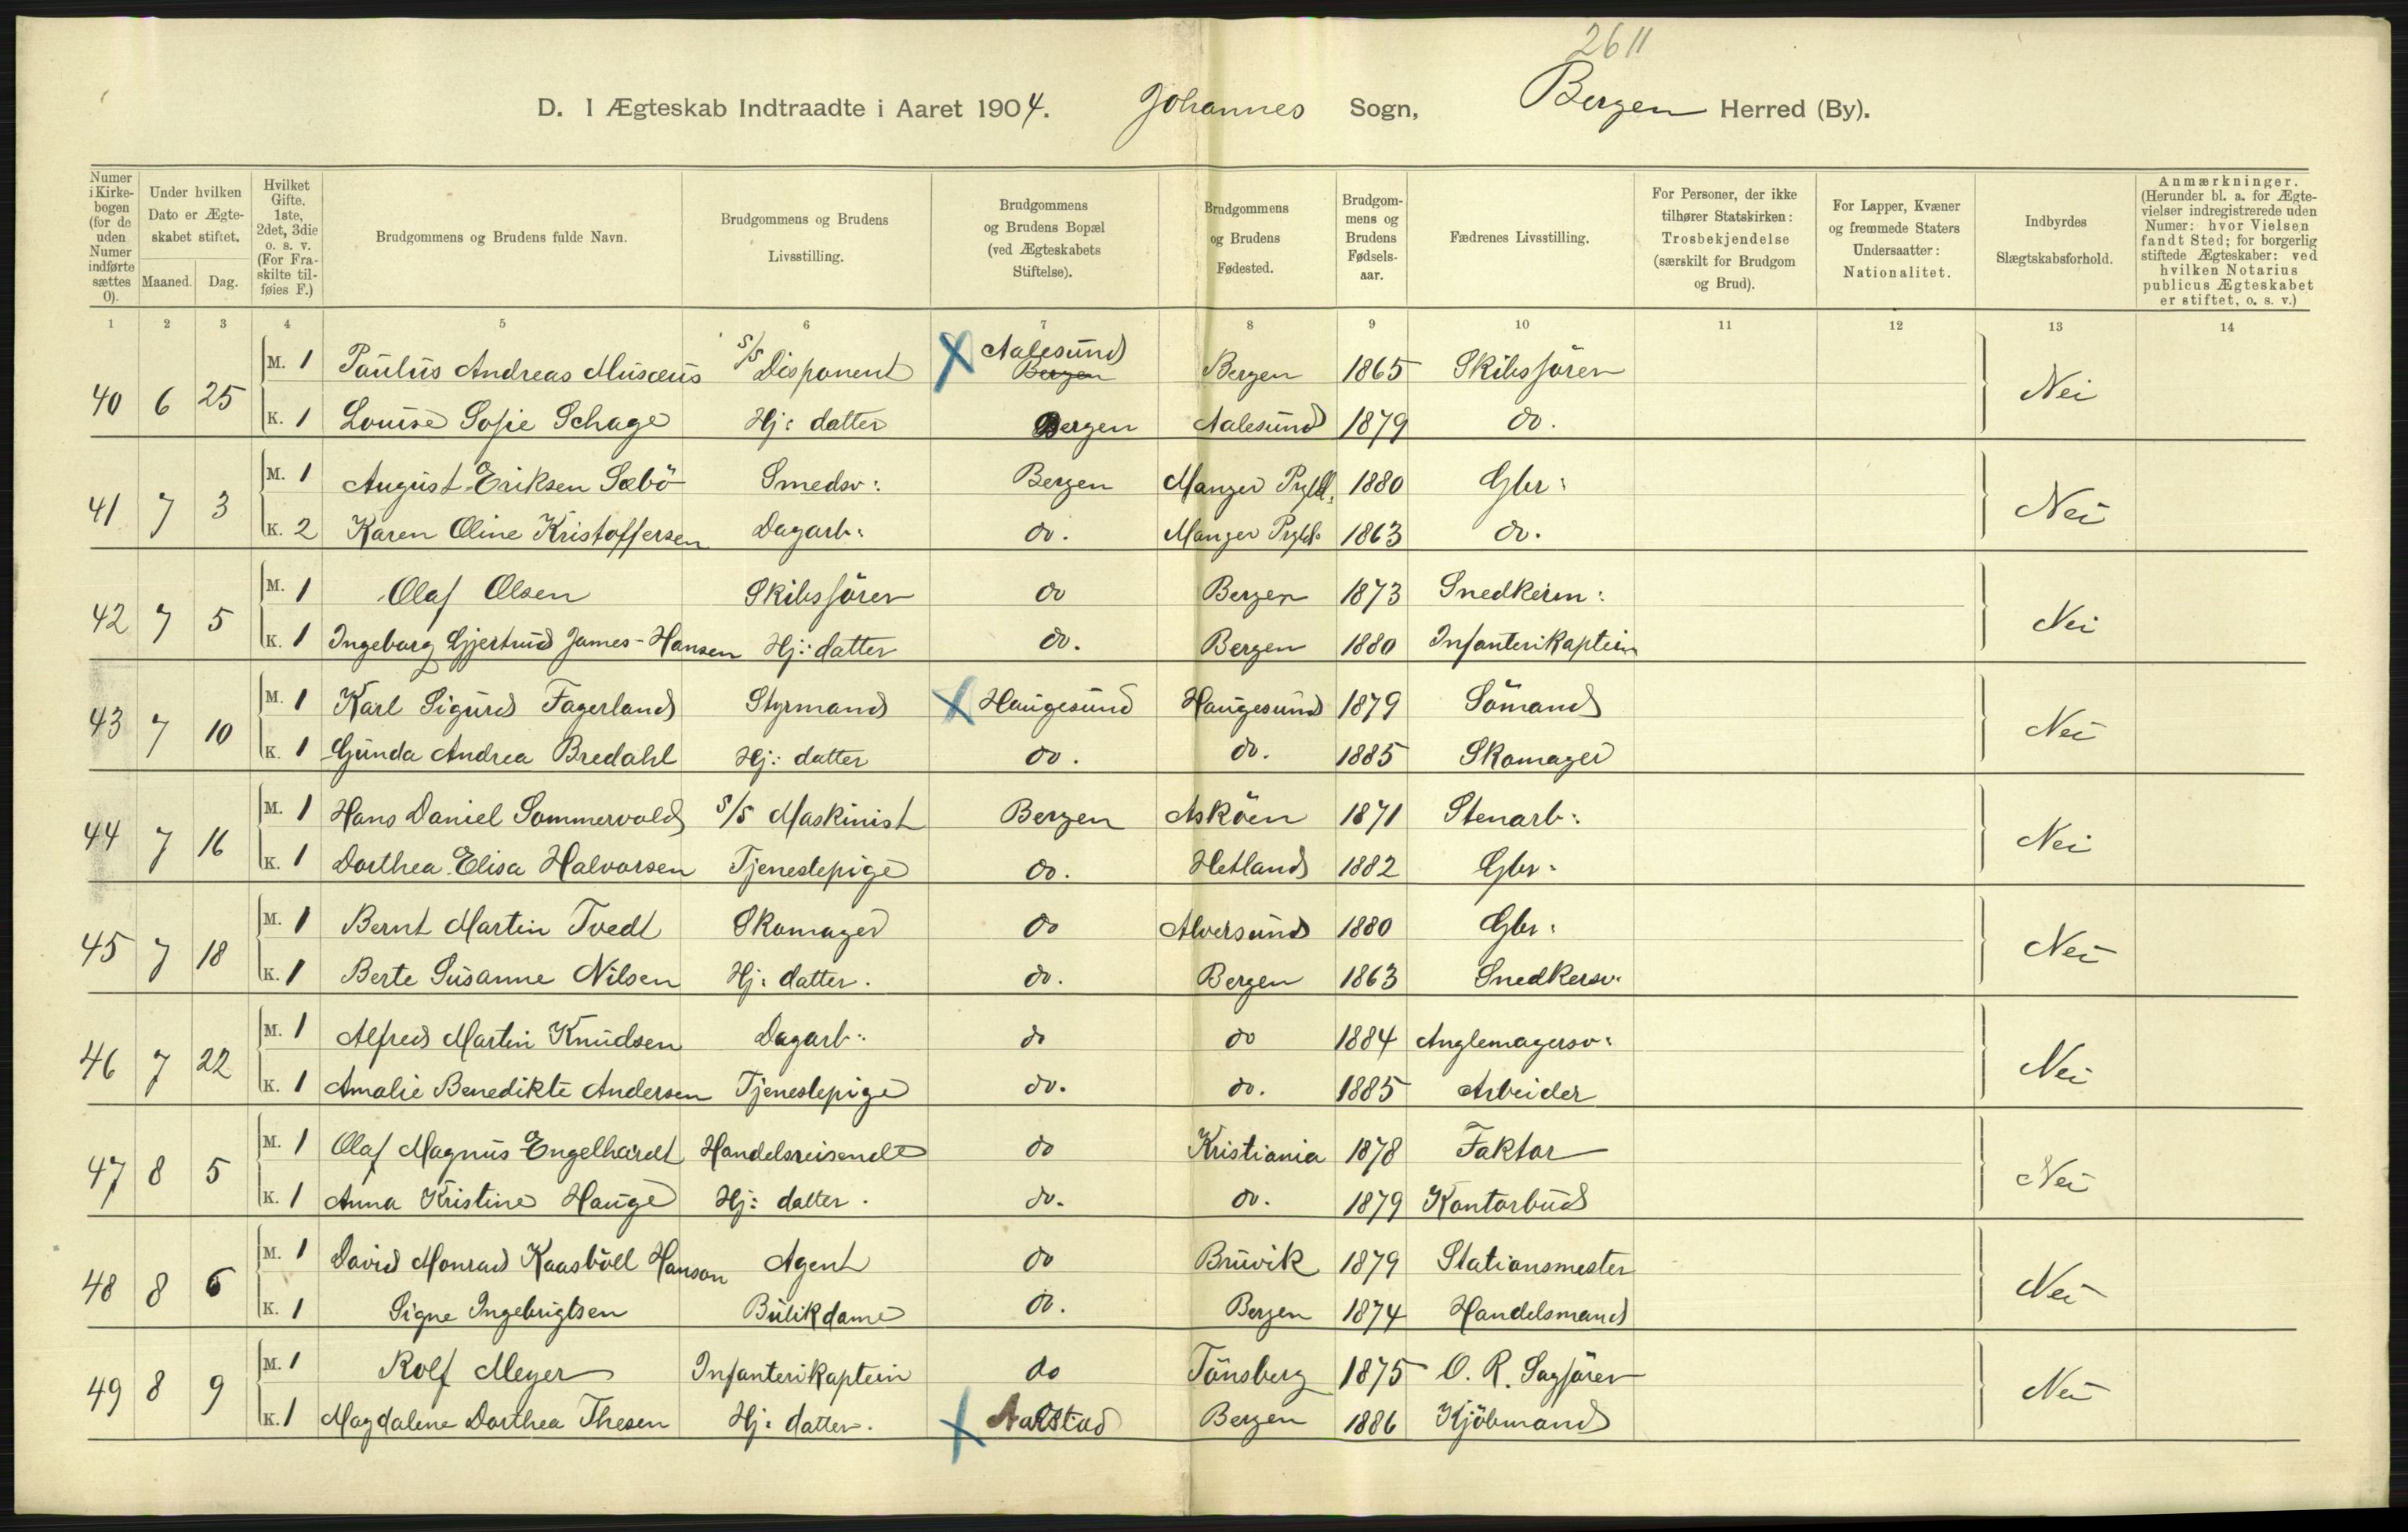 2611
D. I Ægteskab Indtraadte i Aaret 1904. Johannes Sogn, Bergen Herred (By).
Numer i Kirke-bogen (for de uden Numer indførte sættes 0). | Under hvilken Dato er Ægte-skabet stiftet. Maaned. Dag. | Hvilket Gifte. 1ste, 2det, 3die o. s. v. (For Fra-skilte til-føies F.) | Brudgommens og Brudens fulde Navn. | Brudgommens og Brudens Livsstilling. | Brudgommens og Brudens Bopæl (ved Ægteskabets Stiftelse). | Brudgommens og Brudens Fødested. | Brudgom-mens og Brudens Fødsels-aar. | Fædrenes Livsstilling. | For Personer, der ikke tilhører Statskirken: Trosbekjendelse (særskilt for Brudgom og Brud). | For Lapper, Kvæner og fremmede Staters Undersaatter: Nationalitet. | Indbyrdes Slægtskabsforhold. | Anmærkninger. (Herunder bl. a. for Ægte-vielser indregistrerede uden Numer: hvor Vielsen fandt Sted; for borgerlig stiftede Ægteskaber: ved hvilken Notarius publicus Ægteskabet er stiftet, o. s. v.)
1 2 3 4 5 6 7 8 9 10 11 12 13 14
40 6 25 M. 1 Paulus Andreas Musæus S/S Disponent Aalesund Bergen Bergen 1865 Skibsförer Nei
K. 1 Louise Sofie Schage Hj: datter Bergen Aalesund 1879 do.
41 7 3 M. 1 August Eriksen Sæbö Smedsv: Bergen Manger Prgld. 1880 Gbr: Nei
K. 2 Karen Oline Kristoffersen Dagarb: do. Manger Prgld. 1863 do.
42 7 5 M. 1 Olaf Olsen Skibsförer do Bergen 1873 Snedkerm: Nei
K. 1 Ingeborg Gjertrud James-Hansen Hj: datter do. Bergen 1880 Infanterikaptein
43 7 10 M. 1 Karl Sigurd Fagerland Styrmand Haugesund Haugesund 1879 Sömand Nei
K. 1 Gunda Andrea Bredahl Hj: datter do. do. 1885 Skomager
44 7 16 M. 1 Hans Daniel Sommervold S/S Maskinist Bergen Asköen 1871 Stenarb: Nei
K. 1 Dorthea Elisa Halvorsen Tjenestepige do. Hetland 1882 Gbr:
45 7 18 M. 1 Bernt Martin Tvedt Skomager do Alversund 1880 Gbr: Nei
K. 1 Berte Susanne Nilsen Hj: datter. do. Bergen 1863 Snedkersv.
46 7 22 M. 1 Alfred Martin Knudsen Dagarb: do do 1884 Anglemagersv: Nei
K. 1 Amalie Benedikte Andersen Tjenestepige do. do. 1885 Arbeider
47 8 5 M. 1 Olaf Magnus Engelhardt Handelsreisende do Kristiania 1878 Faktor Nei
K. 1 Anna Kristine Hauge Hj: datter. do. do. 1879 Kontorbud
48 8 6 M. 1 David Monrad Kaasböll Hanson Agent do Bruvik 1879 Stationsmester Nei
K. 1 Signe Ingebrigtsen Butikdame do. Bergen 1874 Handelsmand
49 8 9 M. 1 Rolf Meyer Infanterikaptein do Tönsberg 1875 O. R. Sagförer Nei
K. 1 Magdalene Dorthea Thesen Hj: datter. Aarstad Bergen 1886 Kjöbmand